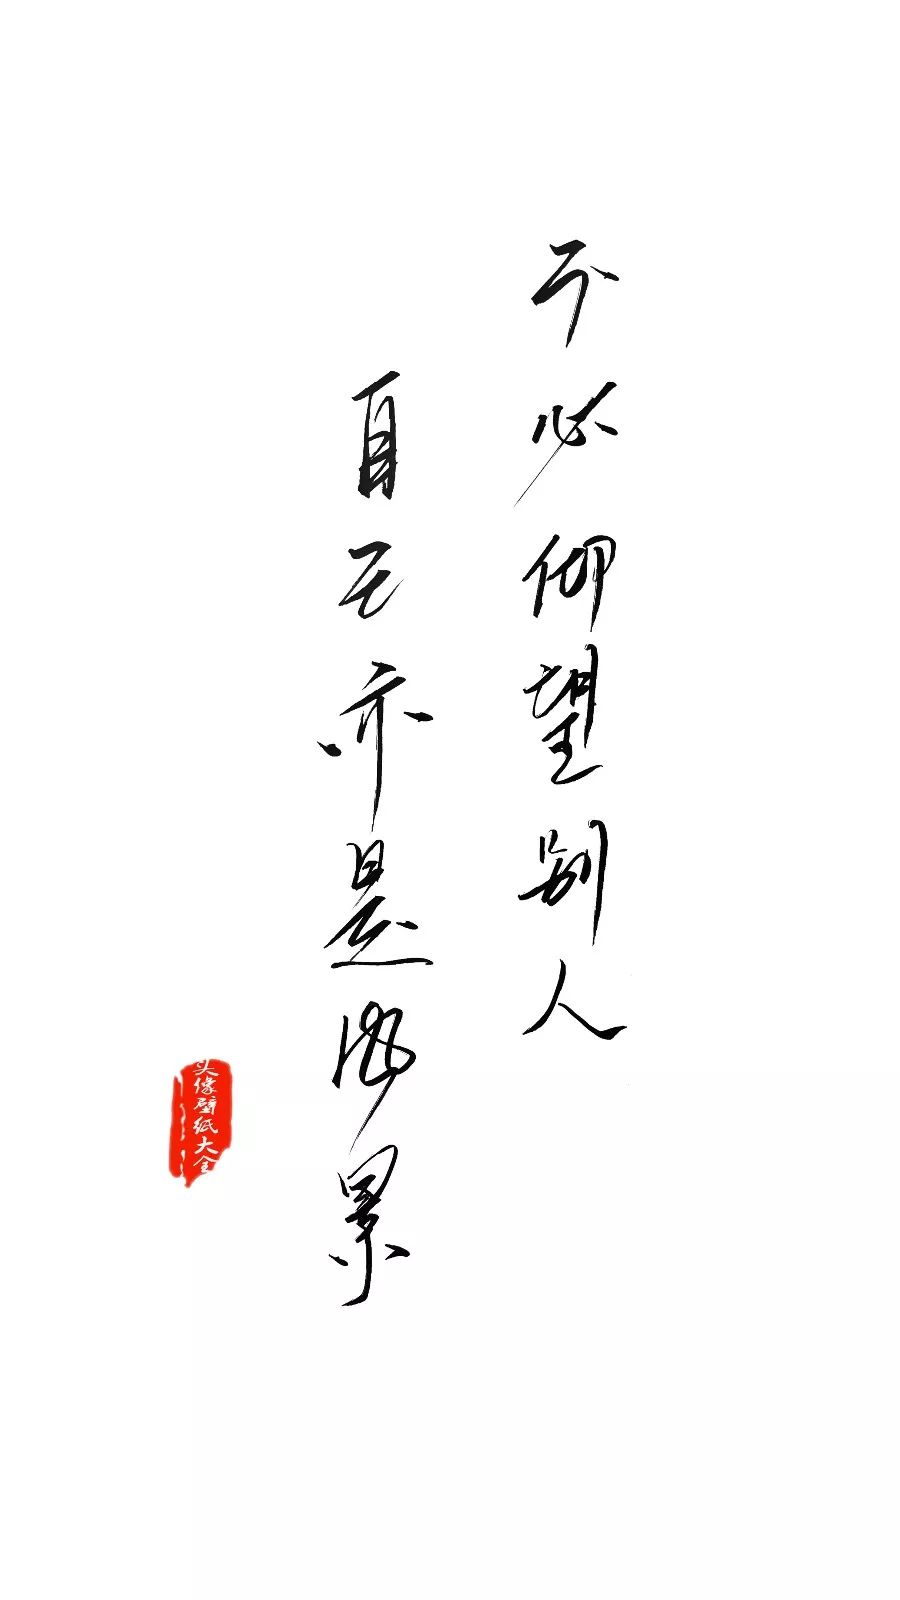 不必仰望别人
自己亦是风景
头像壁纸大全